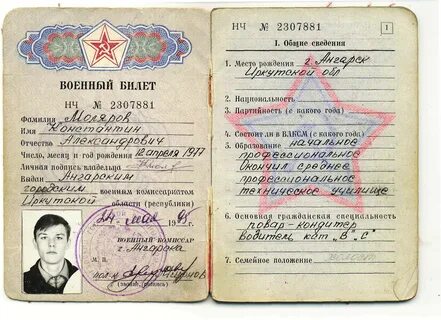 ВОЕННЫЙ БИЛЕТ
НЧ № 2307881
Фамилия Моляров
Имя Константин
Отчество Александрович
Число, месяц и год рождения 12 апреля 1977
Личная подпись владельца
Выдан Ангарским
городским военным комиссариатом
Иркутской области (республики)
24 мая 1995 г.
ВОЕННЫЙ КОМИССАР
г. Ангарска
НЧ № 2307881
1
I. Общие сведения
1. Место рождения г. Ангарск
Иркутской обл
2. Национальность
3. Партийность (с какого года)
4. Состоит ли в ВЛКСМ (с какого года)
5. Образование начальное
профессиональное
Окончил среднее
профессиональное
техническое училище
6. Основная гражданская специальность
повар-кондитер
Водитель кат "В" "С"
7. Семейное положение холост